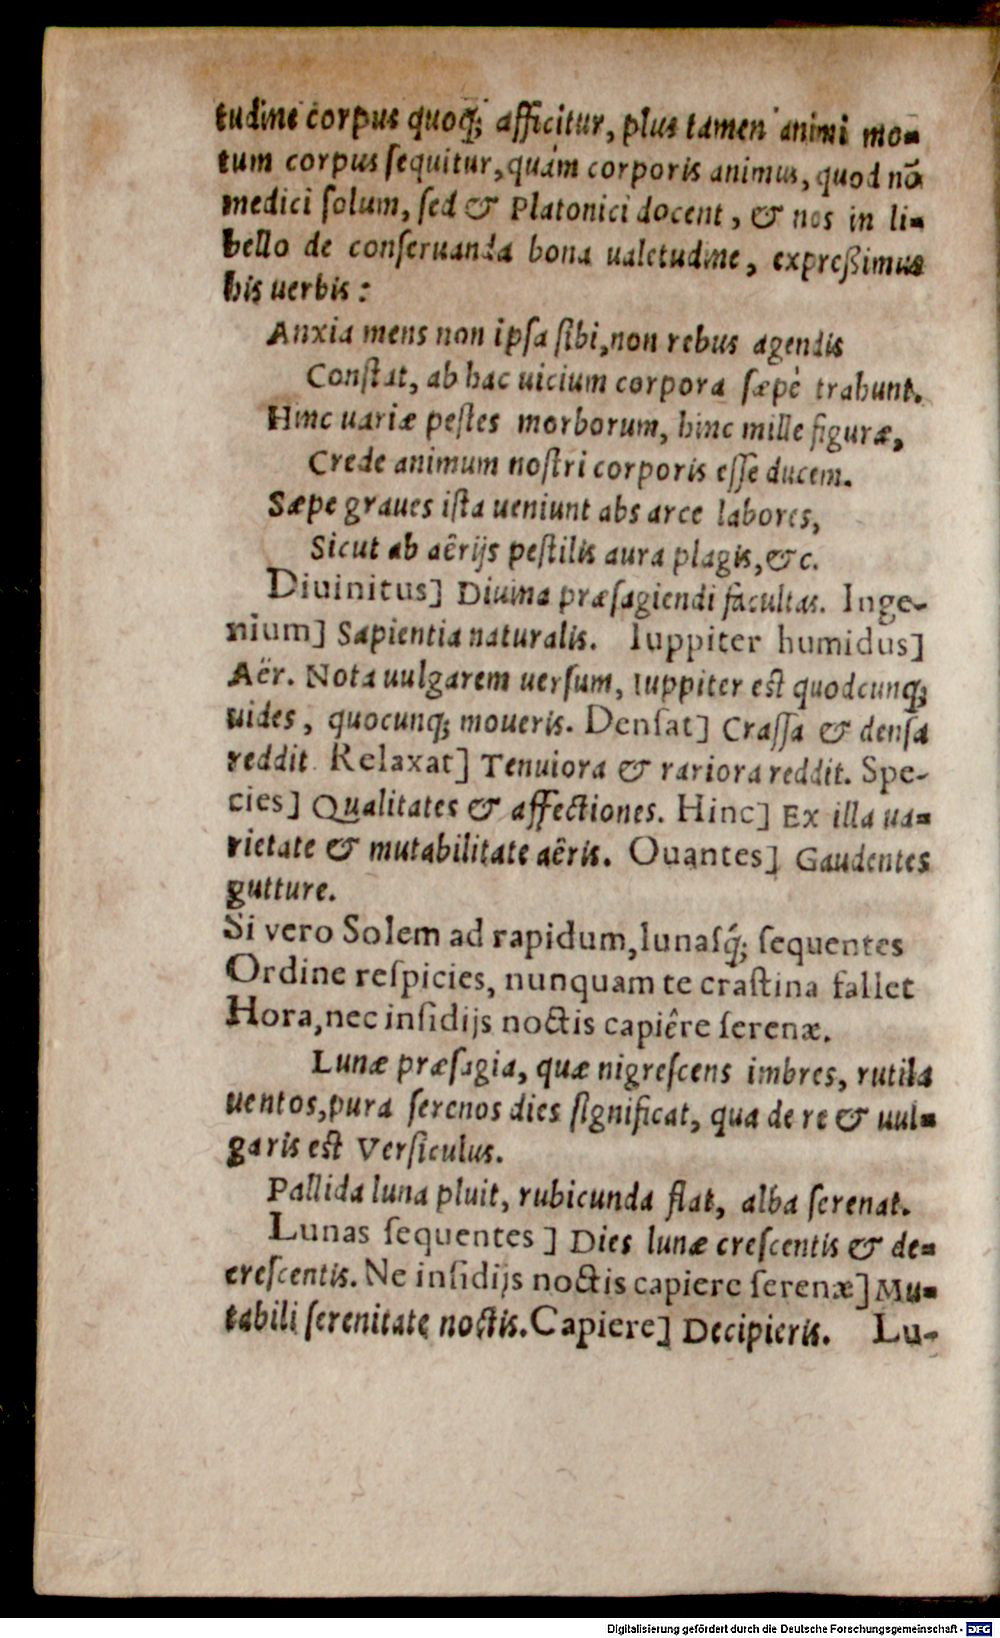 tudine corpus quoq́; afficitur, plus tamen animi mo-
tum corpus ſequitur, quàm corporis animus, quod nõ
medici ſolum, ſed & Platonici docent, & nos in li-
bello de conſeruanda bona ualetudine, expreßimus
his uerbis:
Anxia mens non ipſa ſibi, non rebus agendis
Conſtat, ab hac uicium corpora ſæpè trahunt.
Hinc uariæ peſtes morborum, hinc mille figuræ,
Crede animum noſtri corporis eſſe ducem.
Sæpe graues iſta ueniunt abs arce labores,
Sicut ab aêrijs peſtilis aura plagis, &c.
Diuinitus] Diuina præſagiendi facultas. Inge-
nium] Sapientia naturalis. Iuppiter humidus]
Aër. Nota uulgarem uerſum, Iuppiter eſt quodcunq;
uides, quocunq; moueris. Denſat] Craſſa & denſa
reddit. Relaxat] Tenuiora & rariora reddit. Spe-
cies] Qualitates & affectiones. Hinc] Ex illa ua-
rietate & mutabilitate aêris. Ouantes] Gaudentes
gutture.
Si vero Solem ad rapidum, lunaſq́; ſequentes
Ordine reſpicies, nunquam te craſtina fallet
Hora, nec inſidijs noctis capiêre ſerenæ.
Lunæ præſagia, quæ nigreſcens imbres, rutila
uentos, pura ſerenos dies ſignificat, qua de re & uul-
garis eſt Verſiculus.
Pallida luna pluit, rubicunda flat, alba ſerenat.
Lunas ſequentes] Dies lunæ creſcentis & de-
creſcentis. Ne inſidijs noctis capiere ſerenæ] Mu-
tabili ſerenitate noctis. Capiere] Decipieris. Lu-
Digitalisierung gefördert durch die Deutsche Forschungsgemeinschaft - DFG